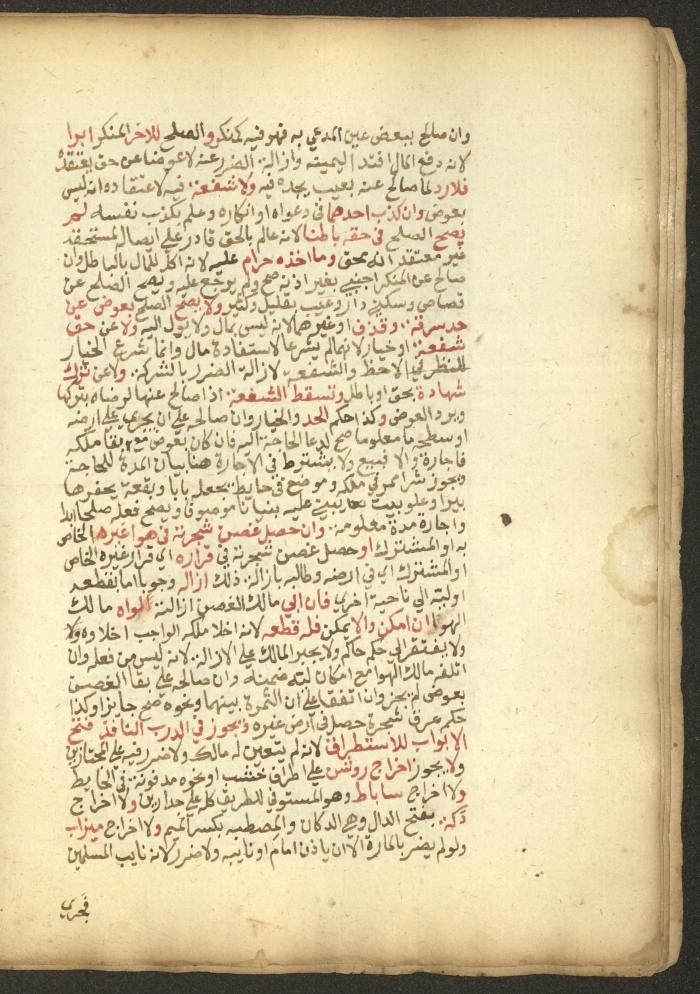 وان صالح ببعض عين المدعي به فهو فيه كمنكر والصلح للاخر المنكر ابرا
لانه دفع المال افتدا ليمينه وازالة الضرر عنه لا عوضا عن حق يعتقده
فلا رد لما صالح عنه بعيب يجده فيه ولا شفعة فيه لاعتقاده انه ليس
بعوض وان كذب احدهما في دعواه او انكاره وعلم بكذب نفسه لم
يصح الصلح في حقه باطنا لانه عالم بالحق قادر علي ايصاله لمستحقه
غير معتقد انه محق وما اخذه حرام عليه لانه اكل للمال بالباطل وان
صالح عن المنكر اجنبي بغير اذنه صح ولم يرجع عليه ويصح الصلح عن
قصاص وسكني دار وعيب بقليل وكثير ولا يصح الصلح بعوض عن
حد سرقة وقذف او غيرهما لانه ليس بمال ولا يول اليه ولا عن حق
شفعة او خيار لانهما لم يشرعا لاستفادة مال وانما شرع الخيار
للنظر في الاحظ والشفعه لازالة الضرر بالشركة ولا عن ترك
شهادة بحق او باطل وتسقط الشفعة اذا صالح عنها لرضاه بتركها
ويرد العوض وكذا حكم الحد والخيار وان صالحه علي ان يجري علي ارضه
او سطحه ما معلوما صح لدعا الحاجة اليه فان كان بعوض مع بقا ملكه
فاجارة والا فبيع ولا يشترط في الاجارة هنا بيان المدة للحاجة
ويجوز شرا ممر في ملكه وموضع في حايط يجعله بابا وبقعة يحفرها
بيرا وعلو بيت يبني عليه بنيانا موصوفا ويصح فعله صلحا ابدا
واجارة مدة معلومة وان حصل غصن شجرته في هوا غيره الخاص
به او المشترك او حصل غصن شجرته في قراره اي قرار غيره الخاص
او المشترك اي في ارضه وطالبه بازالة ذلك ازاله وجوبا اما بقطعه
او ليه الي ناحية اخري فان ابي مالك الغصن ازالته لواه مالك
الهوا ان امكن والا يمكن فله قطعه لانه اخلا ملكه الواجب اخلاوه ولا
ولا يفتقر الي حكم حاكم ولا يجبر المالك علي الازالة لانه ليس من فعله وان
اتلفه مالك الهوا مع امكان ليه ضمنه وان صالحه علي بقا الغصن
بعوض لم يجز وان اتفقا علي ان الثمرة بينهما ونحوه صح جايزا وكذا
حكم عرق شجرة حصل في ارض غيره ويجوز في الدرب النافذ فتح
الابواب للاستطراق لانه لم يتعين له مالك ولا ضرر فيه علي المجتازين
ولا يجوز اخراج روشن علي اطراف خشب او نحوه مدفونة في الحايط
ولا اخراج ساباط وهو المستوفي للطريق كله علي جدارين ولا اخراج
دكة بفتح الدال وهي الدكان والمصطبه بكسر الميم ولا اخراج ميزاب
ولو لم يضر بالمارة الا ان ياذن امام او نايبه ولا ضرر لانه نايب المسلمين
فجري